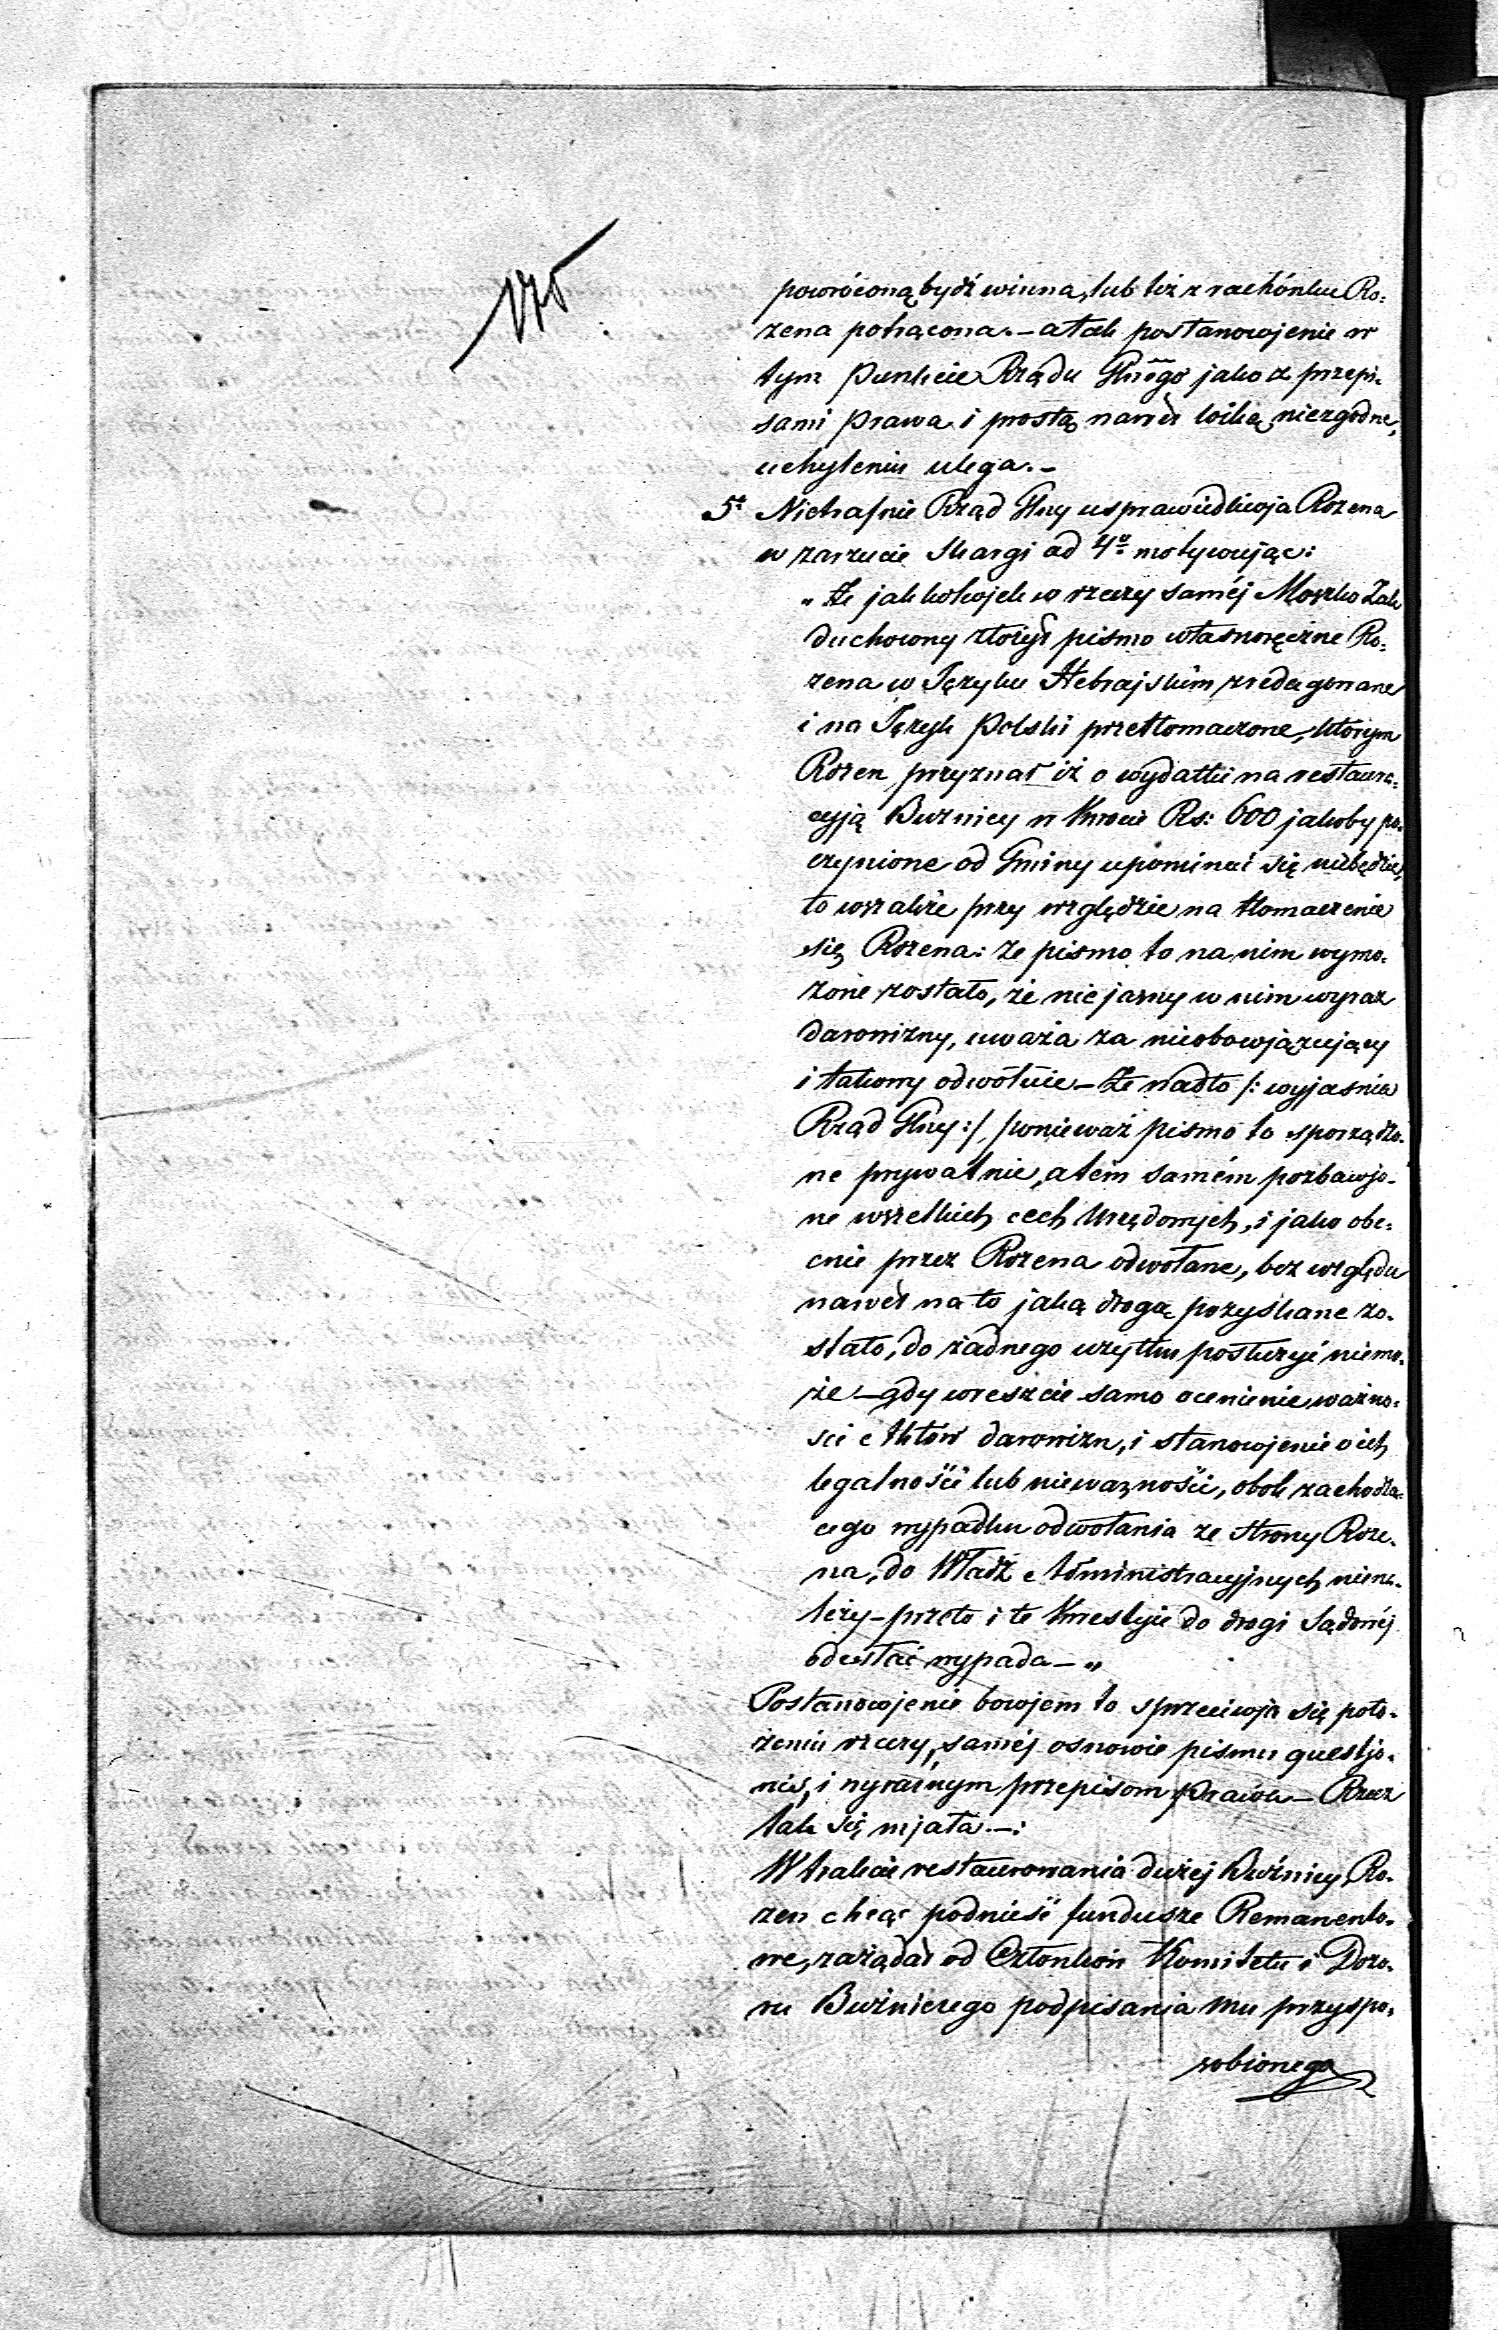 175
powróconą bydź winna, lub też z rachónku Ro-
zena potrącona. – a tak postanowjenie w
tym punkcie Rządu Głnego jako z przepi-
sami prawa i prostą nawet loiką niezgodne,
uchyleniu ulega. –
5t Nietrafnie Rząd Głny usprawiedliwja Rozena
w zarzucie skargi ad 4o motywując:
„Że jakkolwjek w rzeczy saméj Moszko Zak
duchowny złożył pismo własnoręczne Ro-
zena w Języku Hebrajskim zredagowane
i na Język Polski przetłomaczone, którym
Rozen przyznał iż o wydatki na restaura-
cyją Buznicy w Kwocie Rs: 600 jakoby po-
czynione od Gminy upominać się niebędzie,
to wszakże przy względzie na tłomaczenie
się Rozena: że pismo to na nim wymo-
żone zostało, że niejasny w nim wyraz
darowizny, uważa za nieobowjązujący
i takowy odwółuie – Że nadto /: wyjasnia
Rząd Głny :/ ponieważ pismo to sporządzo-
ne prywatnie, a tém samém pozbawjo-
ne wszelkich cech Urzędowych, i jako obe-
cnie przez Rozena odwołane, bez względu
nawet na to jaką drogą pozyskane zo-
stało, do żadnego użytku posłużyć niemo-
że – gdy wreszcie samo ocenienie ważno-
sci Aktów darowizn, i stanowjenie o ich
legalności lub niewazności, obok zachodzą-
cego wypadku odwołania ze strony Roze-
na, do Władź Administracyjnych niena-
leży – przeto i te Kwestyie do drogi Sądowéj
odesłać wypada – „
Postanowjenie bowjem to sprzeciwja się poło-
żeniu rzeczy, saméj osnowie pisma questjo-
nis, i wyraźnym przepisom prawa – Rzecz
tak się mjała. – :
W trakcie restaurowania dużej Buźnicy Ro-
zen chcąc podnieść fundusze Remanento-
we, zażądał od Członków Komitetu i Dozo-
ru Buźniczego podpisania mu przyspo-
sobionego